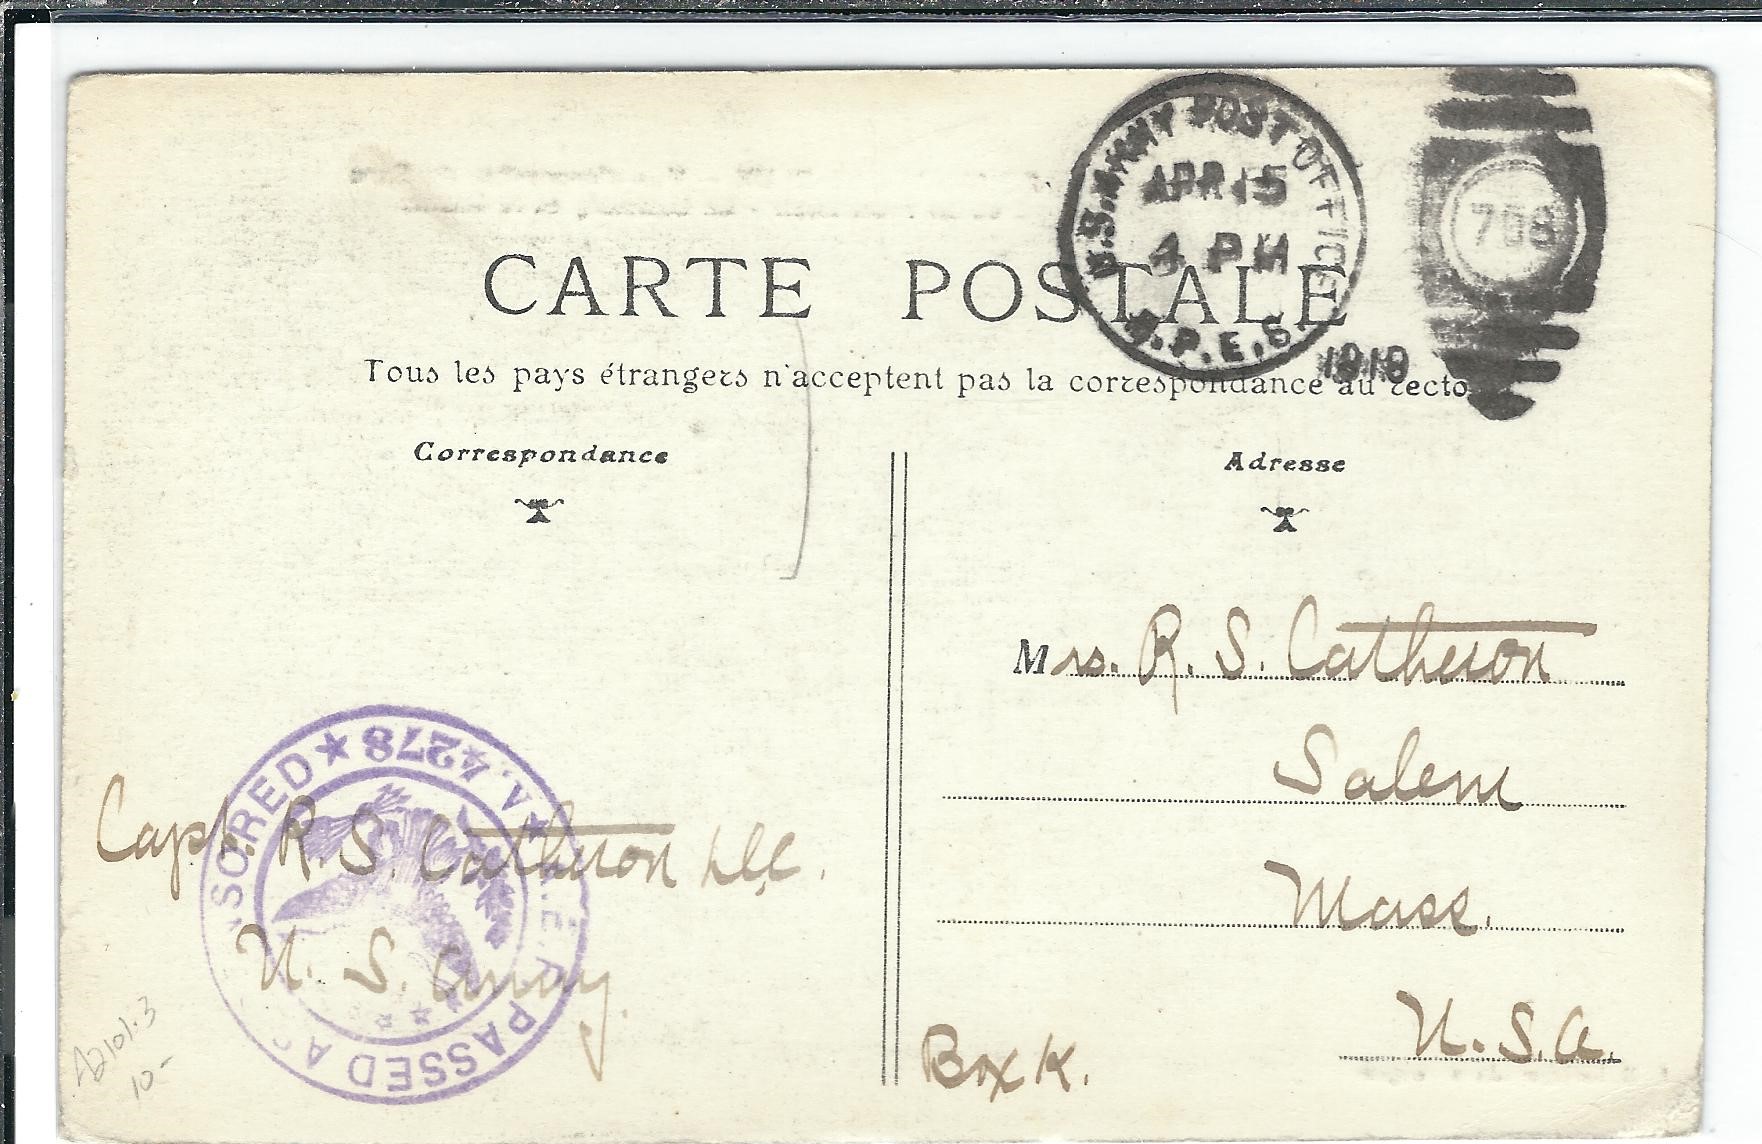 CARTE POSTALE
Tous les pays étrangers n'acceptent pas la correspondance au recto
Correspondance
Adresse
U.S. ARMY POST OFFICE
APR 15
4 PM
M.P.E.S.
1919
Mrs. R. S. Catheron
Salem
Mass.
U. S. A.
Box K.
Capt. R. S. Catheron
U. S. Army.
A.E.F. PASSED AS CENSORED
A. 4278
10-